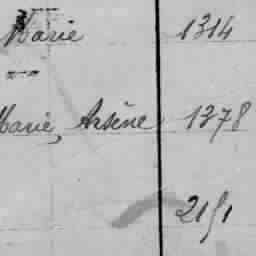 Marie 1314
Marie, Arsène 1378
2151